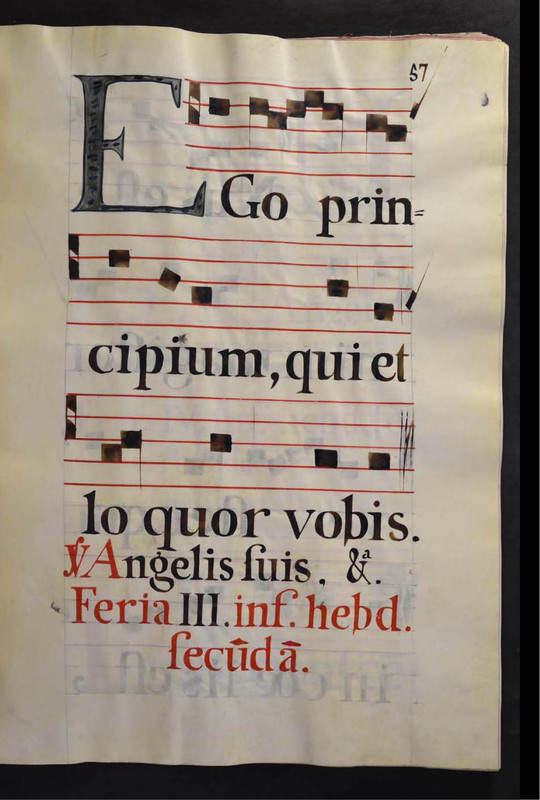 57
EGo prin=
cipium, qui et
lo quor vobis.
℣ Angelis ſuis, &ª.
Feria III. inf. hebd.
ſecūdā.